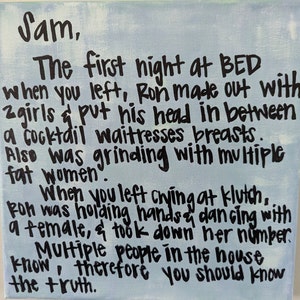 Sam,
The first night at BED
when you left, Ron made out with
2 girls & put his head in between
a cocktail waitresses breasts.
Also was grinding with multiple
fat women.
When you left crying at Klutch,
Ron was holding hands & dancing with
a female, & took down her number.
Multiple people in the house
know, therefore you should know
the truth.